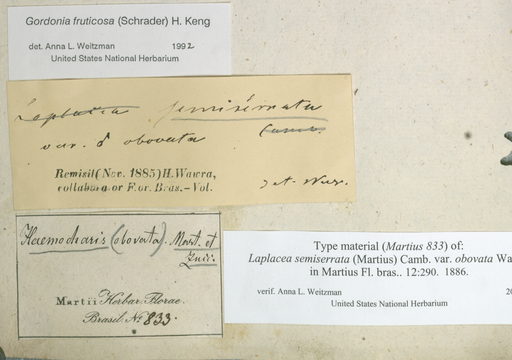 Gordonia fruticosa (Schrader) H. Keng
det. Anna L. Weitzman 1992
United States National Herbarium
Laplacea semiserrata
Camb.
var. δ obovata
Remisit (Nov. 1885) H. Wawra,
collaborator F. or. Bras.-Vol.
det. Wawr.
Haemocharis (obovata). Mart. et
Zucc.
Martii Herbar. Florae
Brasil. No 833.
Type material (Martius 833) of:
Laplacea semiserrata (Martius) Camb. var. obovata Wa
in Martius Fl. bras.. 12:290. 1886.
verif. Anna L. Weitzman 20
United States National Herbarium